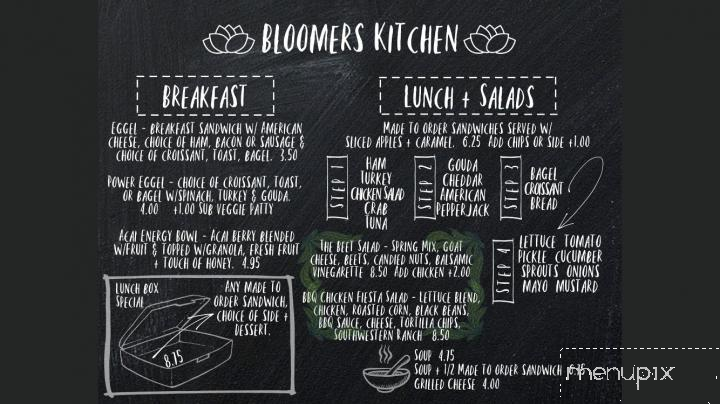 BLOOMERS KITCHEN
BREAKFAST
EGGEL - BREAKFAST SANDWICH W/ AMERICAN
CHEESE, CHOICE OF HAM, BACON OR SAUSAGE &
CHOICE OF CROISSANT, TOAST, BAGEL. 3.50
POWER EGGEL - CHOICE OF CROISSANT, TOAST,
OR BAGEL W/SPINACH, TURKEY & GOUDA.
4.00 +1.00 SUB VEGGIE PATTY
ACAI ENERGY BOWL - ACAI BERRY BLENDED
W/FRUIT & TOPPED W/GRANOLA, FRESH FRUIT
+ TOUCH OF HONEY. 4.95
LUNCH BOX
SPECIAL
ANY MADE TO
ORDER SANDWICH,
CHOICE OF SIDE +
DESSERT.
8.75
LUNCH + SALADS
MADE TO ORDER SANDWICHES SERVED W/
SLICED APPLES + CARAMEL. 6.25 ADD CHIPS OR SIDE +1.00
STEP 1
HAM
TURKEY
CHICKEN SALAD
CRAB
TUNA
STEP 2
GOUDA
CHEDDAR
AMERICAN
PEPPERJACK
STEP 3
BAGEL
CROISSANT
BREAD
STEP 4
LETTUCE TOMATO
PICKLE CUCUMBER
SPROUTS ONIONS
MAYO MUSTARD
THE BEET SALAD - SPRING MIX, GOAT
CHEESE, BEETS, CANDIED NUTS, BALSAMIC
VINEGARETTE 8.50 ADD CHICKEN +2.00
BBQ CHICKEN FIESTA SALAD - LETTUCE BLEND,
CHICKEN, ROASTED CORN, BLACK BEANS,
BBQ SAUCE, CHEESE, TORTILLA CHIPS,
SOUTHWESTERN RANCH 8.50
SOUP 4.75
SOUP + 1/2 MADE TO ORDER SANDWICH
GRILLED CHEESE 4.00
menupix